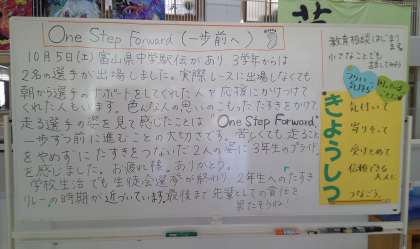 One Step Forward (一歩前へ)
10月5日(土)富山県中学駅伝があり、3学年からは
2名の選手が出場しました。実際レースに出場しなくても
朝から選手のサポートをしてくれた人や応援にかけつけて
くれた人もいます。色んな人の思いのこもったたすきをかけて、
走る選手の姿を見て感じたことは"One Step Forward"
一歩ずつ前に進むことの大切さです。苦しくても走ること
をやめずにたすきをつないだ2人の姿に3年生のプライド
を感じました。お疲れ様。ありがとう。
学校生活でも生徒会選挙が終わり、2年生への"たすき
リレー"の時期が近づいています。最後まで先輩としての責任を
果たそうね!
教育相談はじまり
小さなことでも
きょうしつ
気付いて
寄りそって
受けとめて
信頼できる
大人に
つなごう。